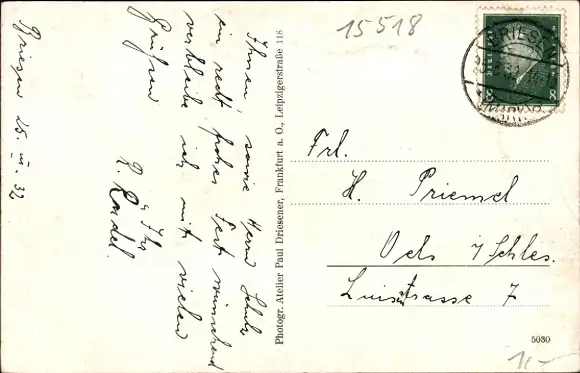 15518
BRIESEN
8 8
Briesen 25. III. 32
Ihnen, sowie Herrn Schulz
ein recht frohes Fest wünschend
verbleibe ich mit vielen
Grüßen
Ihr
R.
Photogr. Atelier Paul Driesener, Frankfurt a. O., Leipzigerstraße 118
Frl.
H. Priemel
Oels i/Schles.
Luisenstrasse 7
5030
1,-